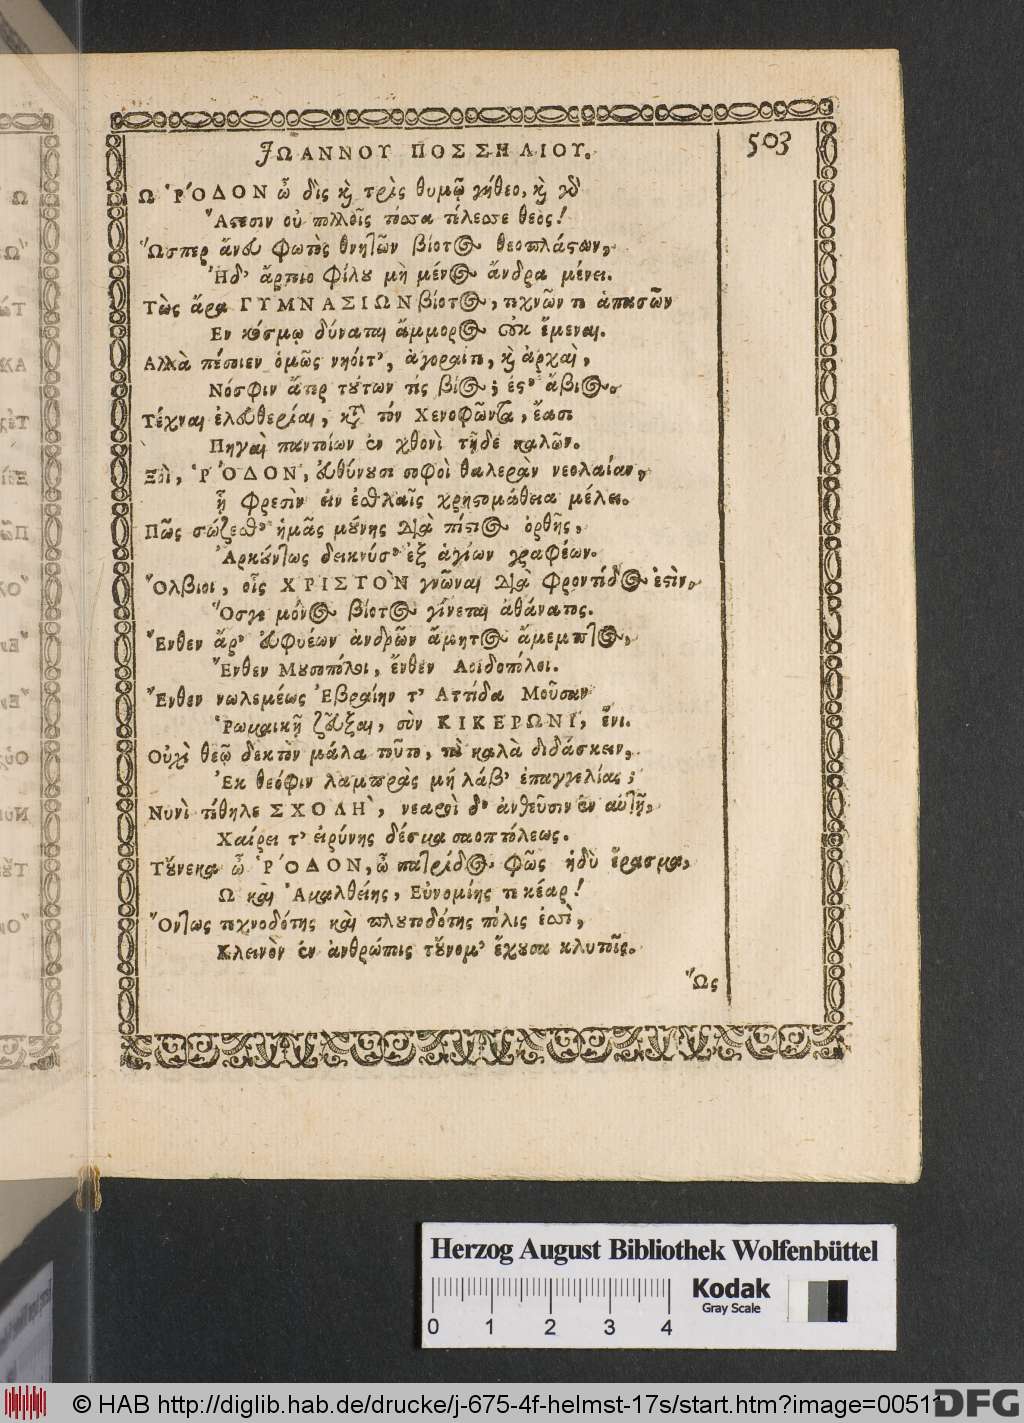 503
ἸΩΑΝΝΟΥ ΠΟΣΣΗΛΙΟΥ.
Ω ῬΌΔΟΝ ὦ δὶς καὶ τρὶς θυμῷ γήθεο, καὶ γὸ
Ἄστεσιν οὐ πολλοῖς τόσσα τέλεσσε θεός!
Ὥσπερ ἄνευ φωτὸς θνητῶν βίοτος θεοπλάστων,
Ἠδ' ἄρτοιο φίλου μὴ μένος ἄνδρα μένει.
Τὼς ἄρα ΓΥΜΝΑΣΙΩΝ βίοτος, τεχνῶν τε ἁπασῶν
Εν κόσμῳ δύναται ἄμμορος οὐκ ἔμεναι.
Αλλὰ πέσοιεν ὁμῶς νηοί τ', ἀγοραί τε, καὶ ἀρχαὶ,
Νόσφιν ἄτερ τούτων τίς βίος; ἐς' ἄβιος.
Τέχναι ἐλευθερίαι, κατὰ τόν Χενοφῶντα, ἔασι
Πηγαὶ παντοίων ἐν χθονὶ τῇδε καλῶν.
ῬΌΔΟΝ, εὐθύνουσι σοφοὶ θαλερὰν νεολαίαν,
ᾗ φρεσιν ἐιν ἐσθλαῖς χρηστομάθεια μέλει.
Πῶς σώζεσθ' ἡμᾶς μούνης διὰ πίστιος ὀρθῆς,
Ἀρκούντως δεικνύσ' ἐξ ἁγίων γραφέων.
Ὄλβιοι, οἷς ΧΡΙΣΤῸΝ γνῶναι διὰ φροντίδος ἐστὶν,
Ὅσγε μόνος βίοτος γίνεται ἀθάνατος.
Ἔνθεν ἄρ' εὐφυέων ἀνδρῶν ἄμητος ἄμεμπτος,
Ἔνθεν Μουσοπόλοι, ἔνθεν Αοιδοπόλοι.
Ἔνθεν νωλεμέως Ἑβραίην τ' Αττίδα Μοῦσαν
Ῥωμαικῇ ζεῦξαι, σὺν ΚΙΚΕΡΩΝΙ, ἔνι.
Οὐχὶ θεῷ δεκτὸν μάλα τοῦτο, τὰ καλὰ διδάσκειν,
Ἐκ θεόφιν λαμπρὰς μή λάβ' ἐπαγγελίας;
Νυνὶ τέθηλε ΣΧΟΛῊ, νεαροὶ δ' ἀνθεῦσιν ἐν αὐτῇ,
Χαίρει τ' εἰρήνης δέσμα σαοπτόλεως.
Τοὔνεκα ὦ ῬΌΔΟΝ, ὦ πατρίδος φῶς ἡδὺ ἔρασμα,
Ω καὶ Ἀμαλθείης, Εὐνομίης τε κέαρ!
Ὄντως τεχνοδότης καὶ πλουτοδότης πόλις ἐσσὶ,
Κλεινὸν ἐν ἀνθρώποις τοὔνομ' ἔχουσα κλυτοῖς.
Ὥς
Herzog August Bibliothek Wolfenbüttel
Kodak
Gray Scale
0 1 2 3 4
© HAB http://diglib.hab.de/drucke/j-675-4f-helmst-17s/start.htm?image=00511
DFG